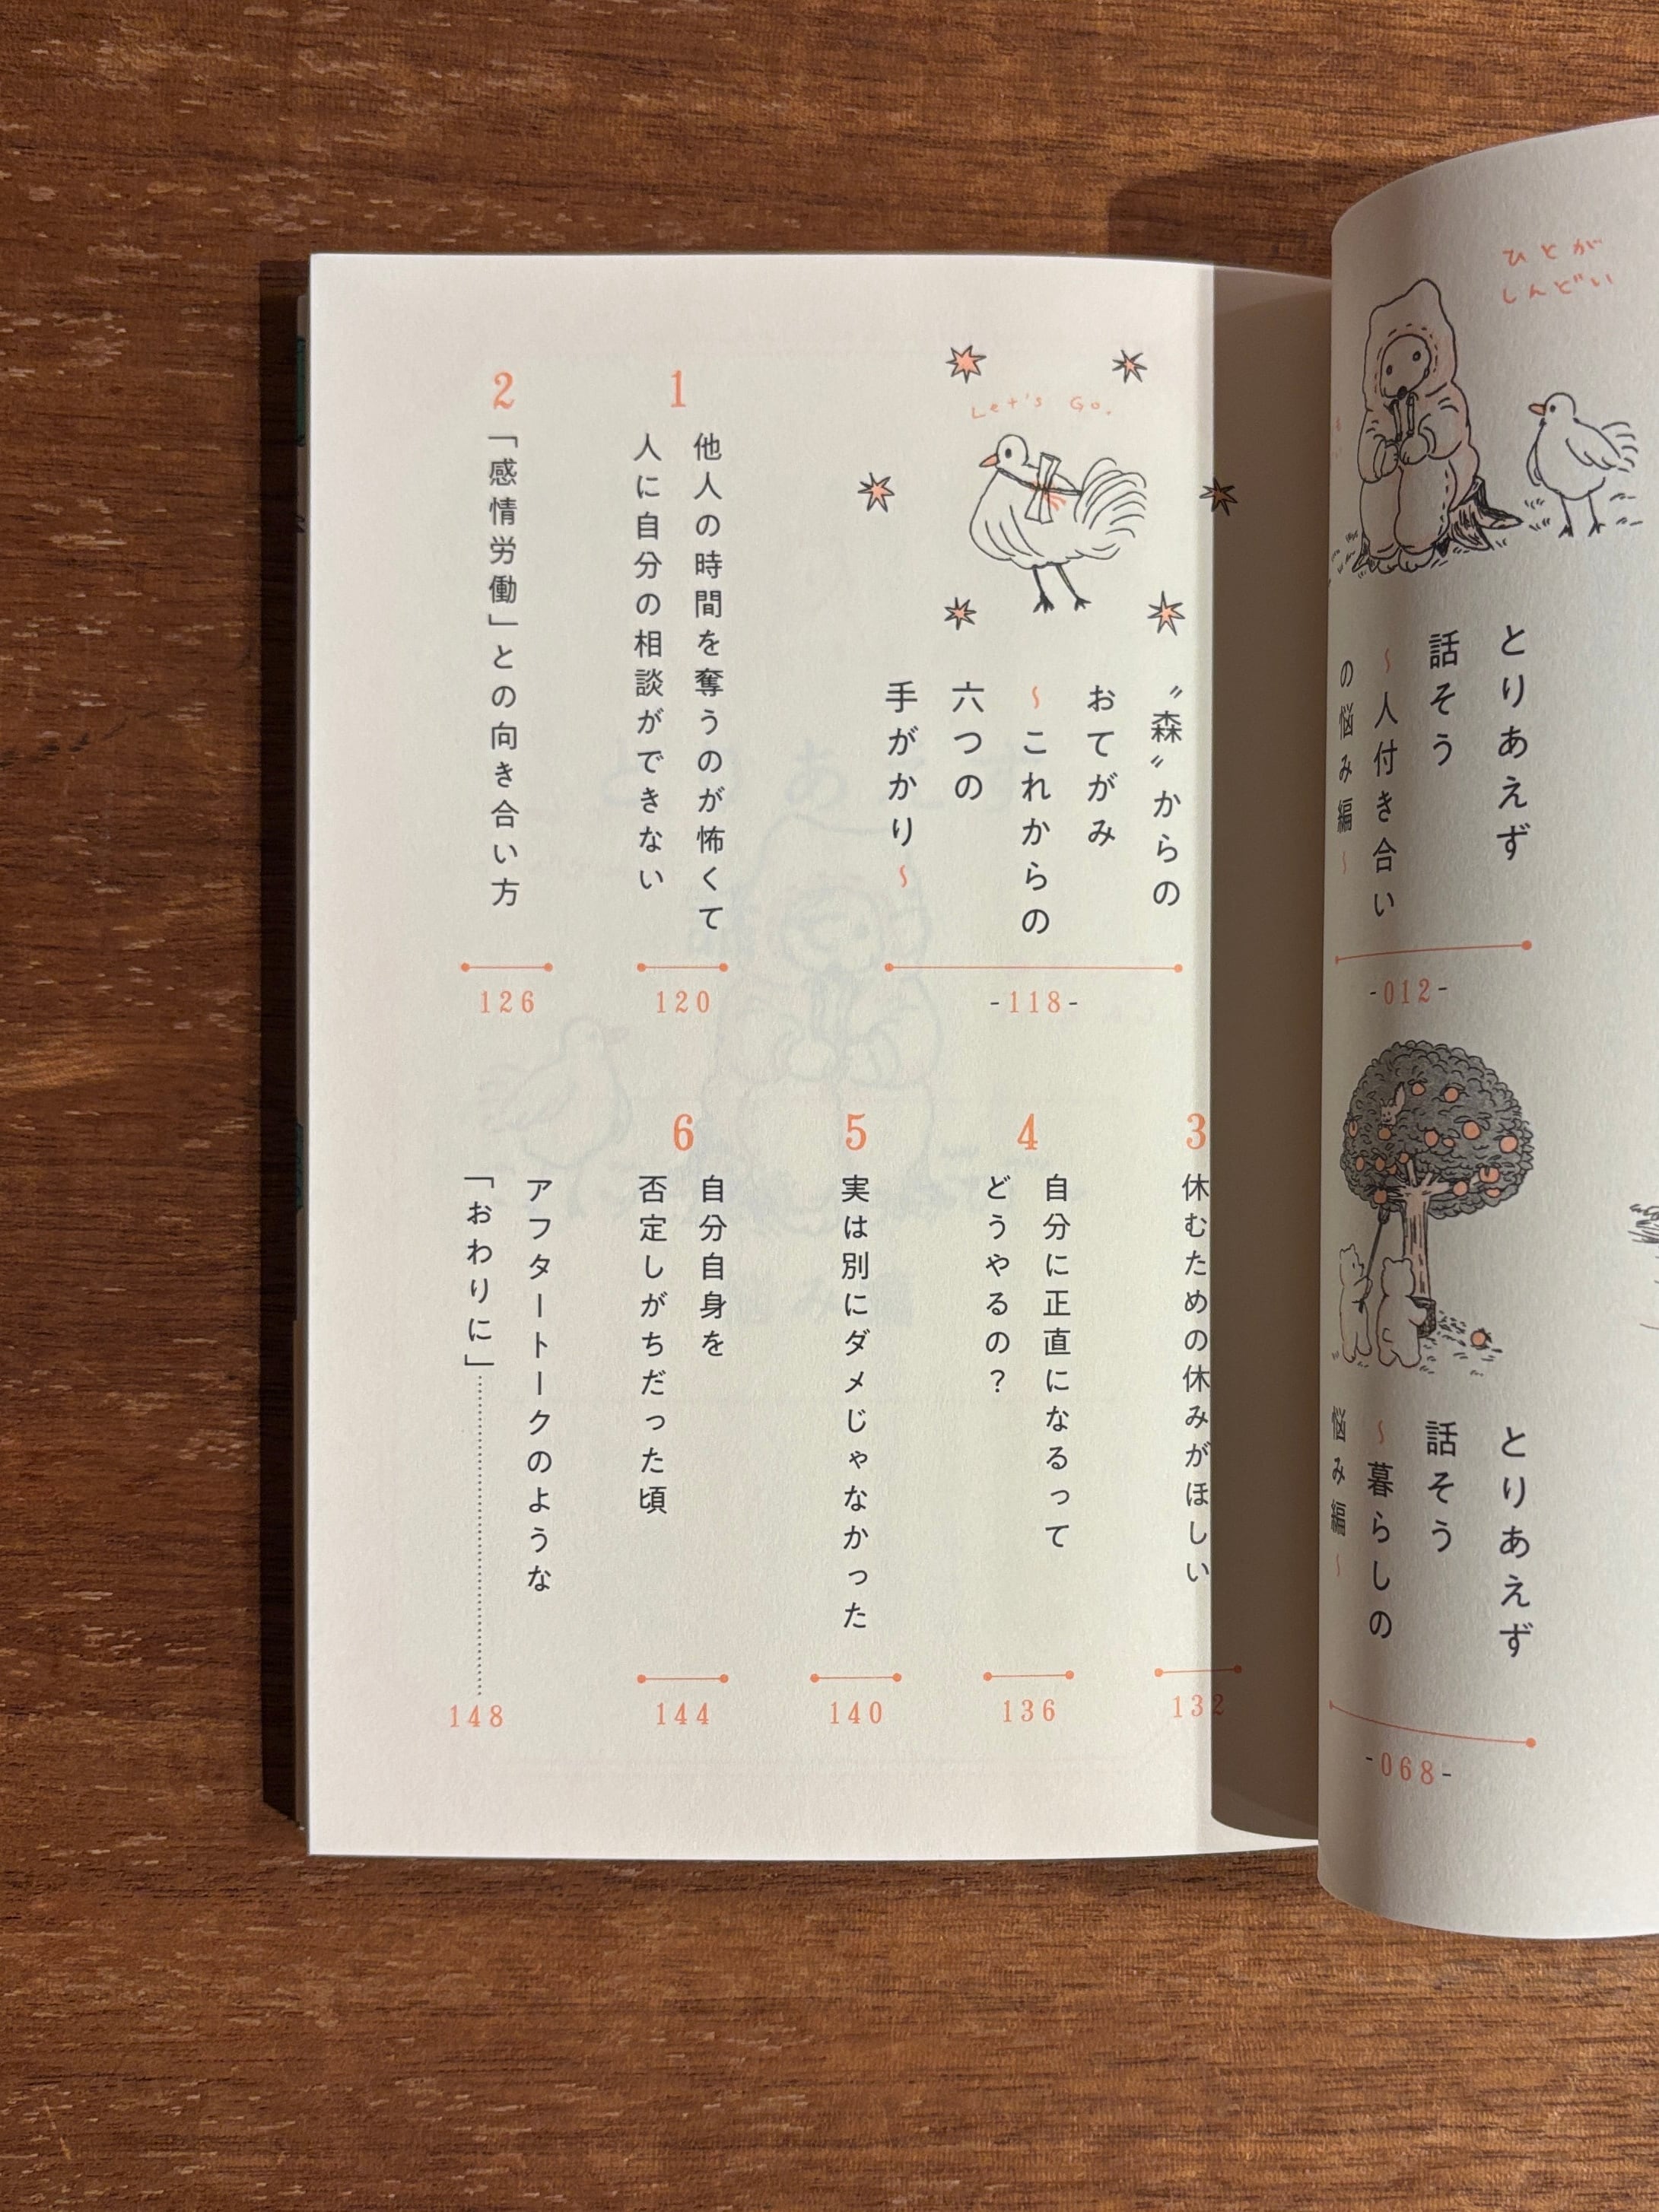 ひとが
しんどい
とりあえず
話そう
〜人付き合い
の悩み編〜
-012-
とりあえず
話そう
〜暮らしの
悩み編〜
-068-
Let's Go.
〝森〟からの
おてがみ
〜これからの
六つの
手がかり〜
-118-
1
他人の時間を奪うのが怖くて
人に自分の相談ができない
120
2
「感情労働」との向き合い方
126
3
休むための休みがほしい
132
4
自分に正直になるって
どうやるの？
136
5
実は別にダメじゃなかった
140
6
自分自身を
否定しがちだった頃
144
アフタートークのような
「おわりに」
148